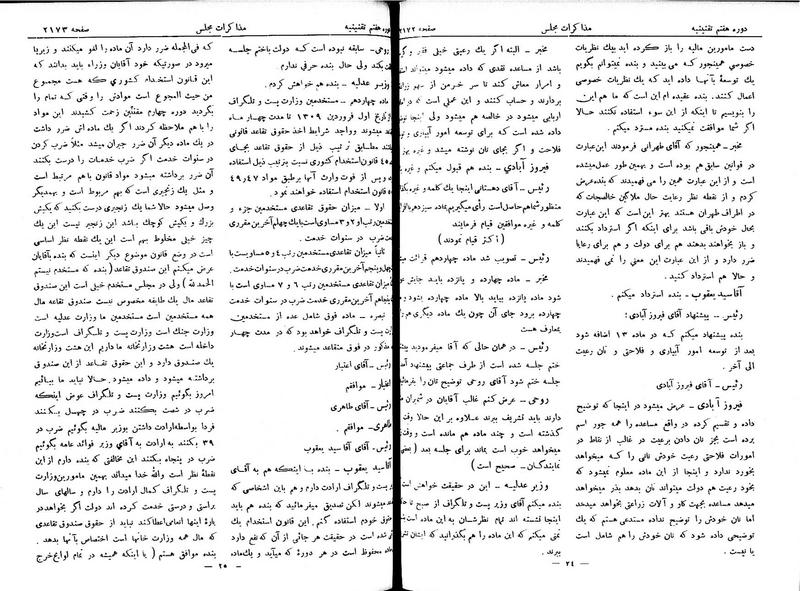 دوره هفتم تقنینیه
مذاکرات مجلس
صفحه ۲۱۷۲
دست مامورین مالیه را باز کرده اید بیك نظریات
خصوصی همینجور که می بینید و بنده نمیتوانم بگویم
یك توسعهٔ بآنها داده اید که یك نظریات خصوصی
اعمال کنند. بنده عقیده ام این است که ما هم این
را بنویسیم تا اینکه از این سوء استفاده نکنند حالا
اگر شما موافقت نمیکنید بنده مسترد میکنم.
مخبر ـ همینجور که آقای طهرانی فرمودند این عبارت
در قوانین سابق هم بوده است و بهمین طور عمل میشده
است و از این عبارت همین را می فهمیدند که بنده عرض
کردم و از نقطه نظر رعایت حال ملاکین خالصجات که
در اطراف طهران هستند بهتر این است که این عبارت
بحال خودش باقی باشد برای اینکه اگر استرداد بکنند
و باز بخواهند بدهند هم برای دولت و هم برای رعایا
ضرر دارد و از این عبارت این معنی را نمی فهمیدند
و حالا هم استرداد کنید.
آقا سید یعقوب ـ بنده استرداد میکنم.
رئیس ـ پیشنهاد آقای فیروز آبادی:
بنده پیشنهاد میکنم که در ماده ۱۳ اضافه شود
بعد از توسعه امور آبیاری و فلاحتی و نان رعیت
الی آخر.
رئیس ـ آقای فیروز آبادی
فیروز آبادی ـ عرض میشود در اینجا که توضیح
داد و تقسیم کرده در واقع مساعده را همه جور اسم
برده است بجز نان دادن برعیت در غالب از نقاط در
امورات فلاحتی رعیت خودش نانی را که میخواهد
بخورد ندارد و اینجا از این ماده معلوم نمیشود که
بخود رعیت هم دولت میتواند نان بدهد بذر میخواهد
میدهد مساعده بجهت کار و آلات زراعتی بخواهد میدهد
اما نان خودش را توضیح نداده مستدعی هستم که یك
توضیحی داده شود که نان خودش را هم شامل است
یا نیست.
مخبر ـ البته اگر یك رعیتی خیلی فقیر و
باشد از مساعده نقدی که داده میشود میتواند
و امرار معاش کند تا سر خرمن از سهم
بردارند و حساب کنند و این عملی است
اربابی میشود در خالصه هم میشود ولی اینجا
داده شده است که برای توسعه امور آبیاری و
فلاحت و اگر بجای نان نوشته میشد و غیره
فیروز آبادی ـ بنده هم قبول میکنم و غیره
رئیس ـ آقای دهستانی اینجا یك کلمه و غیره
منظور شما هم حاصل است رأی میگیریم بماده سیزده
کلمه و غیره موافقین قیام فرمایند
(اکثر قیام نمودند)
رئیس ـ تصویب شد ماده چهاردهم قرائت
مخبر ـ ماده چهارده و پانزده باید جایش
شود ماده پانزده بیاید بالا ماده چهارده بشود و
چهارده برود جای آن چون یك ماده دیگری هم
بمعارف هست
رئیس ـ در همان حالی که آقا میفرمودید
ختم جلسه شده است از طرف جماعتی پیشنهاد
ختم جلسه شود آقای روحی توضیح نان را
روحی ـ عرض کنم غالب آقایان در شمیران
دارند باید تشریف ببرند علاوه بر این حالا
گذشته است و چند ماده هم مانده است و
میخواهد خوب است بماند برای جلسه بعد
نمایندگان ـ صحیح است)
وزیر عدلیه ـ این در حقیقت خواهش
بنده میکنم آقای وزیر پست و تلگراف از صبح تا
اینجا نشسته اند تمام نظرشان به این ماده است
تمنی میکنم که این ماده را هم بگذرانید که
ببرند.
ـ ۲۴ ـ
دوره هفتم تقنینیه
مذاکرات مجلس
صفحه ۲۱۷۳
روحی ـ سابقه نبوده است که دولت باختم جلسه
بکند ولی حال بنده حرفی ندارم.
وزیر عدلیه ـ بنده هم خواهش کردم.
ماده چهاردهم ـ مستخدمین وزارت پست و تلگراف
تاریخ اول فروردین ۱۳۰۹ تا مدت چهار ماه
میشوند و واجد شرایط اخذ حقوق تقاعد قانونی
مطابق ترتیب ذیل از حقوق تقاعد بجای
۴۵ قانون استخدام کشوری نسبت بترتیب ذیل استفاده
و پس از فوت وارث آنها برطبق مواد ۴۷ و ۴۹
قانون استخدام استفاده خواهند نمود.
اولا ـ میزان حقوق تقاعدی مستخدمین جزء و
رتب او ۲ و ۳ مساوی است با یك چهلم آخرین مقرری
ضرب در سنوات خدمت.
ثانیاً میزان تقاعدی مستخدمین رتب ٤ و ٥ مساوی است با
پنجم آخرین مقرری خدمت ضرب در سنوات خدمت.
تقاعدی مستخدمین رتب ٦ و ٧ مساوی است با
پنجاهم آخرین مقرری خدمت ضرب در سنوات خدمت
تبصره ـ ماده فوق شامل عده از مستخدمین
پست و تلگراف خواهد بود که در مدت چهار
مذکور در فوق متقاعد میشوند.
رئیس ـ آقای اعتبار
اعتبار ـ موافقم
رئیس ـ آقای طاهری
طاهری ـ موافقم.
رئیس ـ آقای آقا سید یعقوب
آقا سید یعقوب ـ بنده با اینکه هم به آقای
پست و تلگراف ارادت دارم و هم باین اشخاصی که
میشوند لکن تصدیق میفرمائید که بنده هم باید
خودم استفاده کنم. این قانون استخدام یك
شده است در حقیقت هر جائی از آن که نفع دارد
محفوظ است در هر دورهٔ که میآید و یك ماده
که فی الجمله ضرر دارد آن ماده را لغو میکنند و زیرپا
میرود در صورتیکه خود آقایان وزراء باید بدانند که
این قانون استخدام کشوری که هست مجموع
من حیث المجموع است موادش را وقتی که تمام را
بگیرید دوره چهارم مقننین زحمت کشیدند این مواد
را با هم ملاحظه کردند اگر یك ماده اش ضرر داشت
در یك ماده دیگر آن ضرر جبران میشد مثلا ضرب کردن
در سنوات خدمت اگر ضرب خدمات را درست بکنند
آن ضرر برداشته میشود مواد قانون با هم مرتبط است
و مثل یك زنجیری است که بهم مربوط است و بهمدیگر
وصل میشود حالا شما یك زنجیری درست بکنید که یکیش
بزرك و یکیش کوچك باشد این زنجیر نیست این یك
چیز خیلی مخلوط بهم است این یك نقطه نظر اساسی
است در وضع قانون موضوع دیگر اینست که بنده بآقایان
عرض میکنم این صندوق تقاعد (بنده که مستخدم نیستم
الحمدلله) ولی در مجلس مستخدم خیلی است این صندوق
تقاعد مال یك طایفه مخصوص نیست صندوق تقاعد مال
همه مستخدمین است مستخدمین ما وزارت عدلیه است
وزارت جنك است وزارت پست و تلگراف است وزارت
داخله است هشت وزارتخانه ما داریم این هشت وزارتخانه
یك صندوق دارد و این حقوق تقاعد از این صندوق
برداشته میشود و داده میشود. حالا نباید ما بیائیم
امروز بگوئیم وزارت پست و تلگراف عوض اینکه
ضرب در شصت بکنند ضرب در چهل بکنند
فردا بواسطه ارادت داشتن بوزیر مالیه بگوئیم ضرب در
۳۹ بکنند به ارادت به آقای وزیر فوائد عامه بگوئیم
ضرب در پنجاه بکنند این مخالفتی که بنده دارم از این
نقطهٔ نظر است والله خدا میداند بهمین مامورین وزارت
پست و تلگراف کمال ارادت را دارم و سالهای سال
براستی و درستی خدمت کرده اند دولت اگر بخواهد در
بارهٔ اینها انعامی اعطا کند نباید از حقوق صندوق تقاعدی
که مال همه وزارت خانها است اختصاص بآنها بدهد.
بنده موافق هستم (با اینکه همیشه در تمام لوایح خرج
ـ ۲۵ ـ